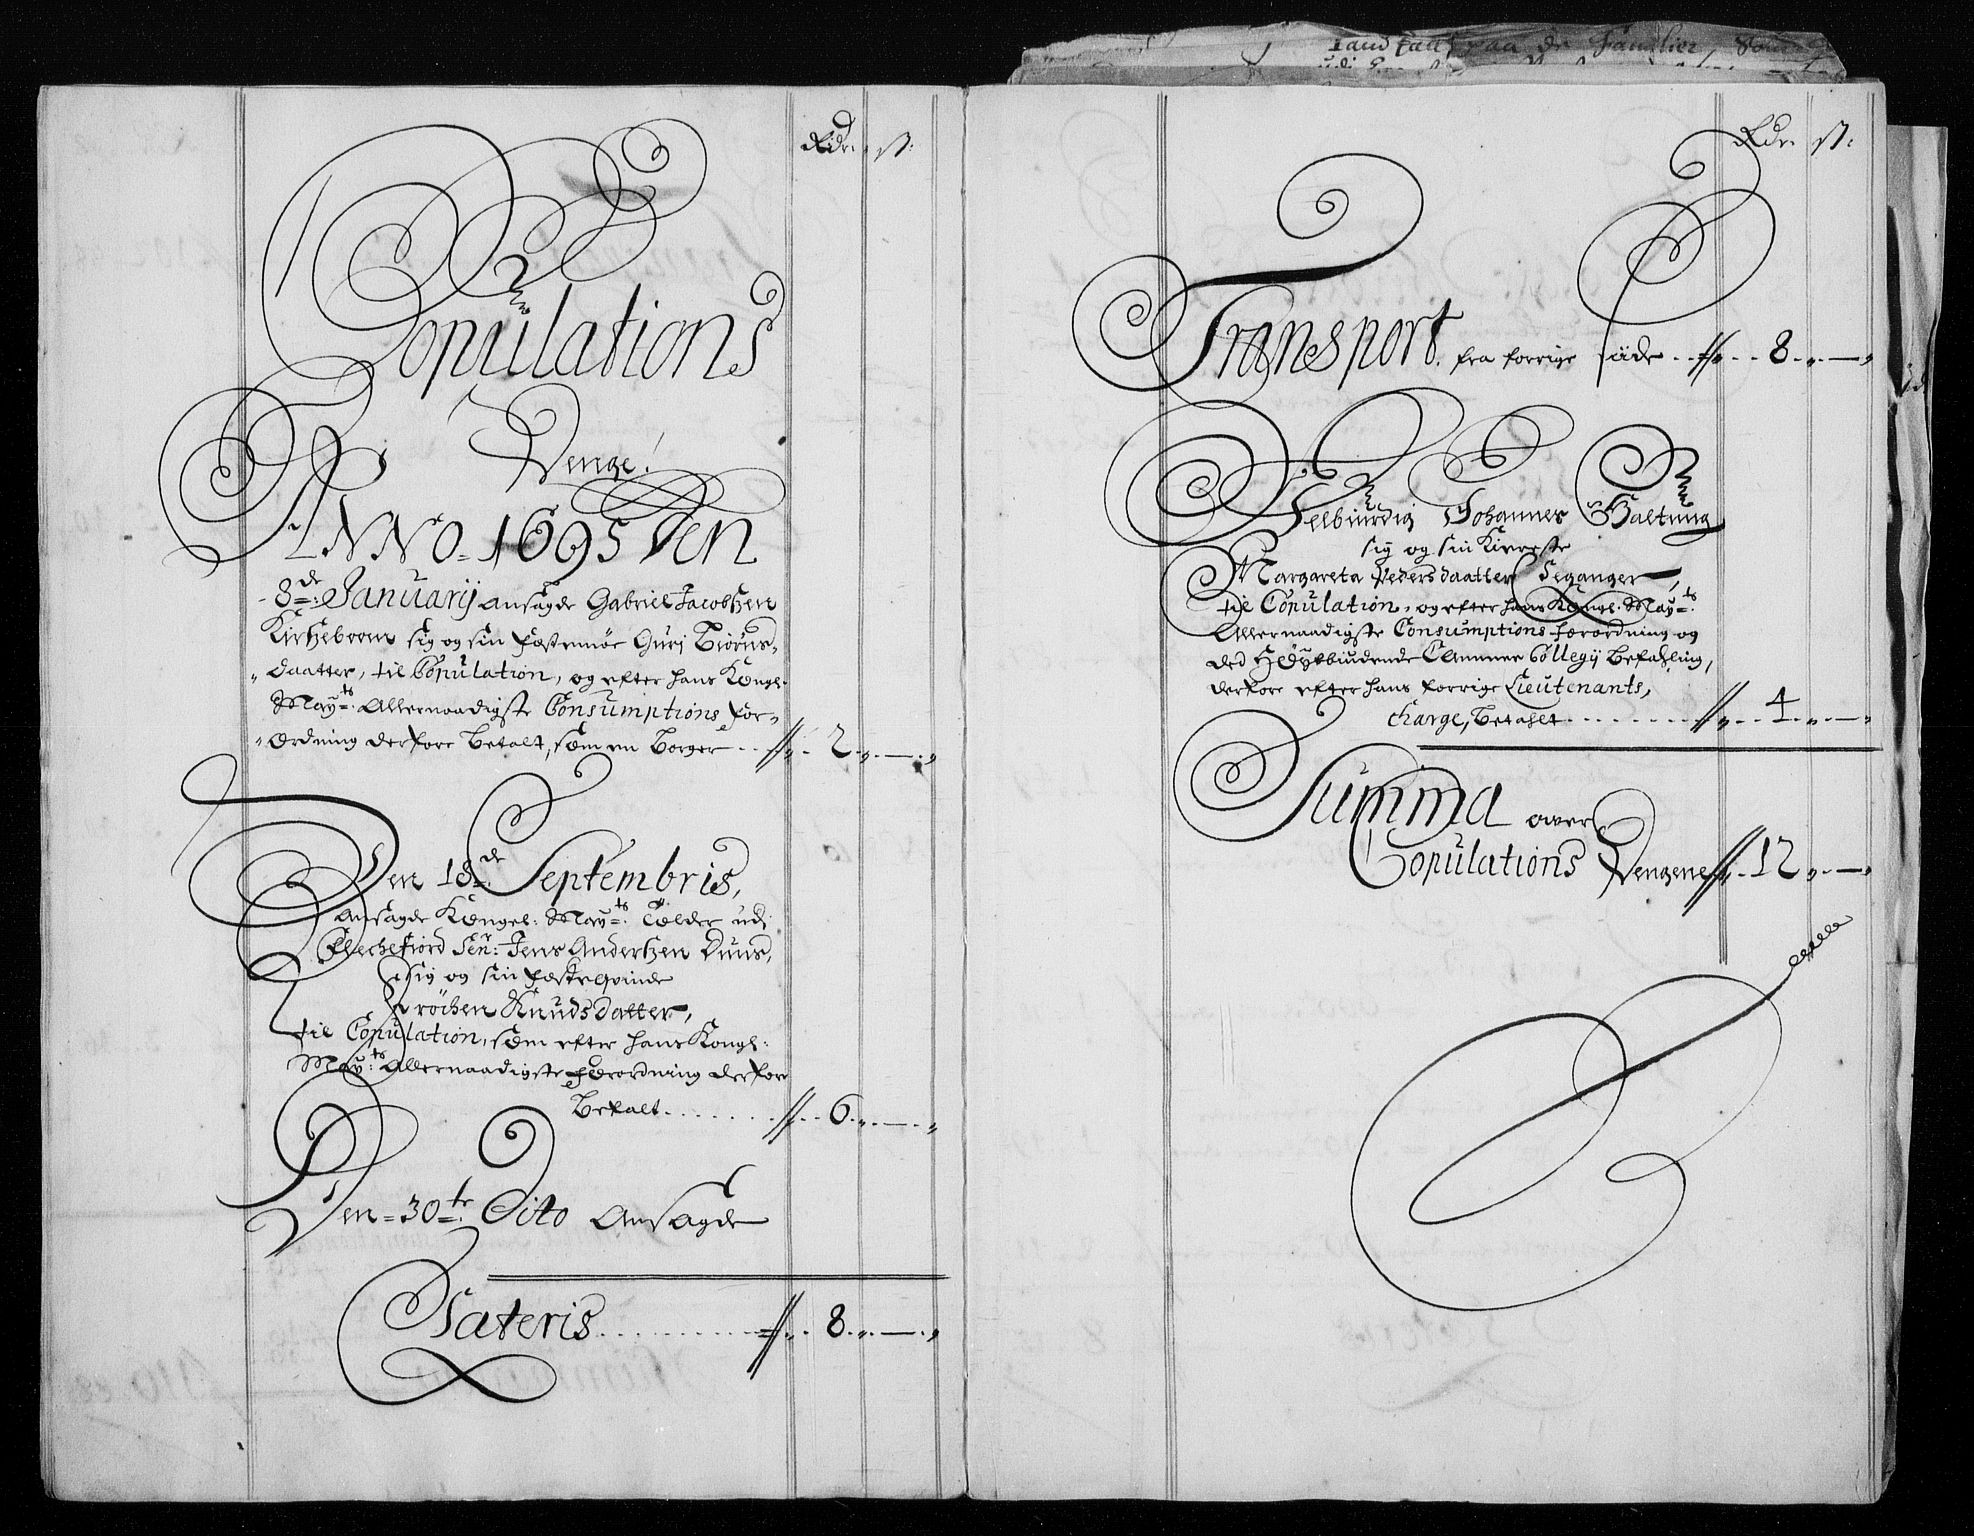 Rdr. ß:
Copulations
Penge!
ANNO. 1695 Den
8de: Januarij ansagde Gabriel Jacobszen
Kirszeboem sig og sin festemøe Guri Biörns-
daatter, til Copulation, og efter hans Kongl:
Mayts: Allernaadigste Consumptions For-
Ordning derfore Betalt, som en Borger // 2 „ — „
Den 18de Septembris,
Ansagde Kongel: Mayts: Tolder udi
Flechefiord Senr: Jens Anderszen Duus,
sig og sin festeqvinde
Fröchen Knudsdatter,
til Copulation, som efter hans Kongl:
Mayts: Allernaadigste Forordning derfore
Betalt // 6 „ — „
Den 30te Dito Ansagde
Lateris // 8 „ — „
Rdr. ß:
Transport fra forrige side // 8 „ — „
Velbiurdig Johannes Haltung
sig og sin Kiereste
Margareta Pedersdaatter Teganger,
til Copulation, og efter hans Kongl. Mayts:
Allernaadigste Consumptions forordning og
ded Höytbiudende Cammer Collegij Befahling,
derfore efter hans forrige Lieutenants,
Charge, Betahlt // 4 „ — „
Summa ower
Copulations Pengene // 12 „ — „